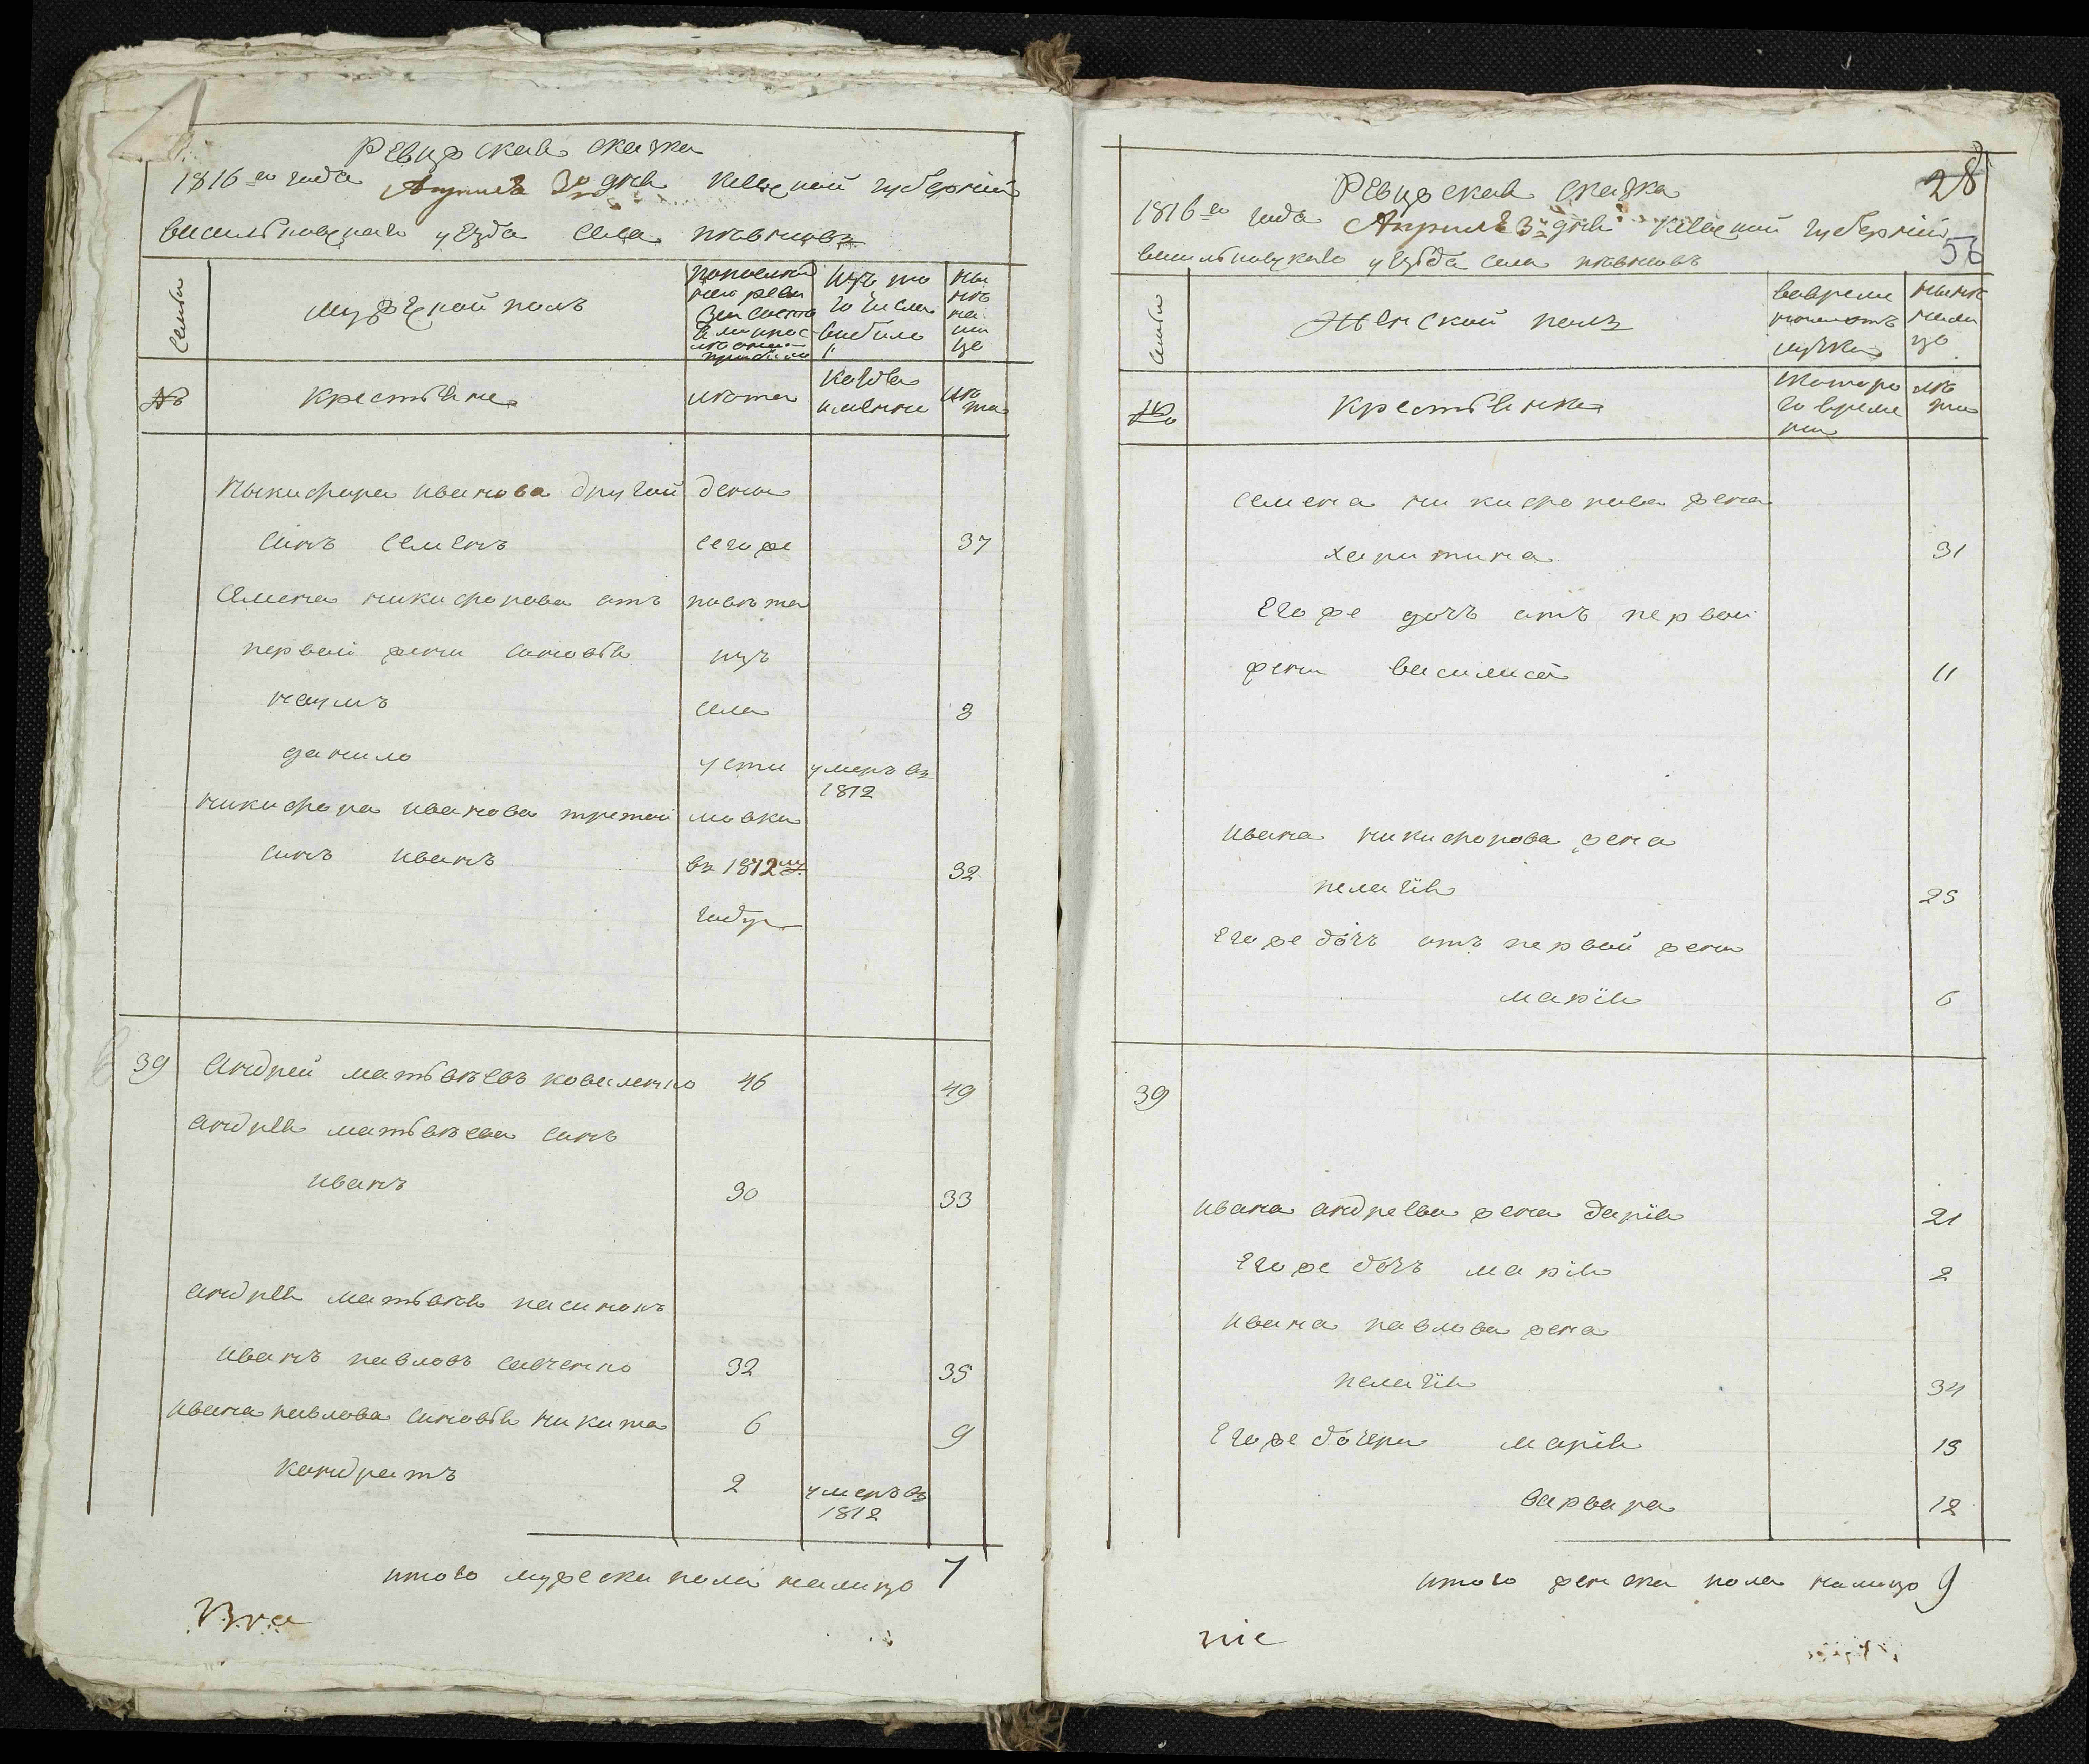 Ревизская сказка
1816го года Апреля 3 дня Киевской губернии
васильковскаго уезда села
Семьи
Мужеской полъ
по последней ревизии состояло и после оной прибыло
Изъ того числа выбыло
Ныне на лицо
№
крестьяне
лета
когда именно
лета
Никифора иванова другой
дети
сынъ семенъ
сего же
37
семена никифорова отъ
повета
первой жены сыновья
изъ
наумъ
села
3
данило
усти
умеръ въ
1812
никифора иванова третей
мовки
сынъ иванъ
въ 1812мъ
32
году
39 андрей матвеевъ коваленко 46 49
андрея матвеева сынъ
иванъ 30 33
андрея матвея пасынокъ
иванъ павловъ савченко 32 35
ивана павлова сыновья никита 6 9
кондратъ 2 умеръ въ
1812
итого мужеска пола налицо 7
28
Ревизская сказка
1816го года Апреля 3 дня Киевской губернии
56
васильковскаго уезда села
Семьи
Женской полъ
во временной отлучке
ныне на лицо
№
крестьянки
с котораго времени
лета
семена никифорова жена
харитина 31
Его же дочь отъ первой
жены василиса 11
ивана никифорова жена
пелагия 25
Его же дочь отъ первой жены
мария 6
39
ивана андреева жена дария 21
Его же дочь мария 2
ивана павлова жена
пелагия 34
Его же дочери мария 15
варвара 12
итого женска пола налицо 9
nie